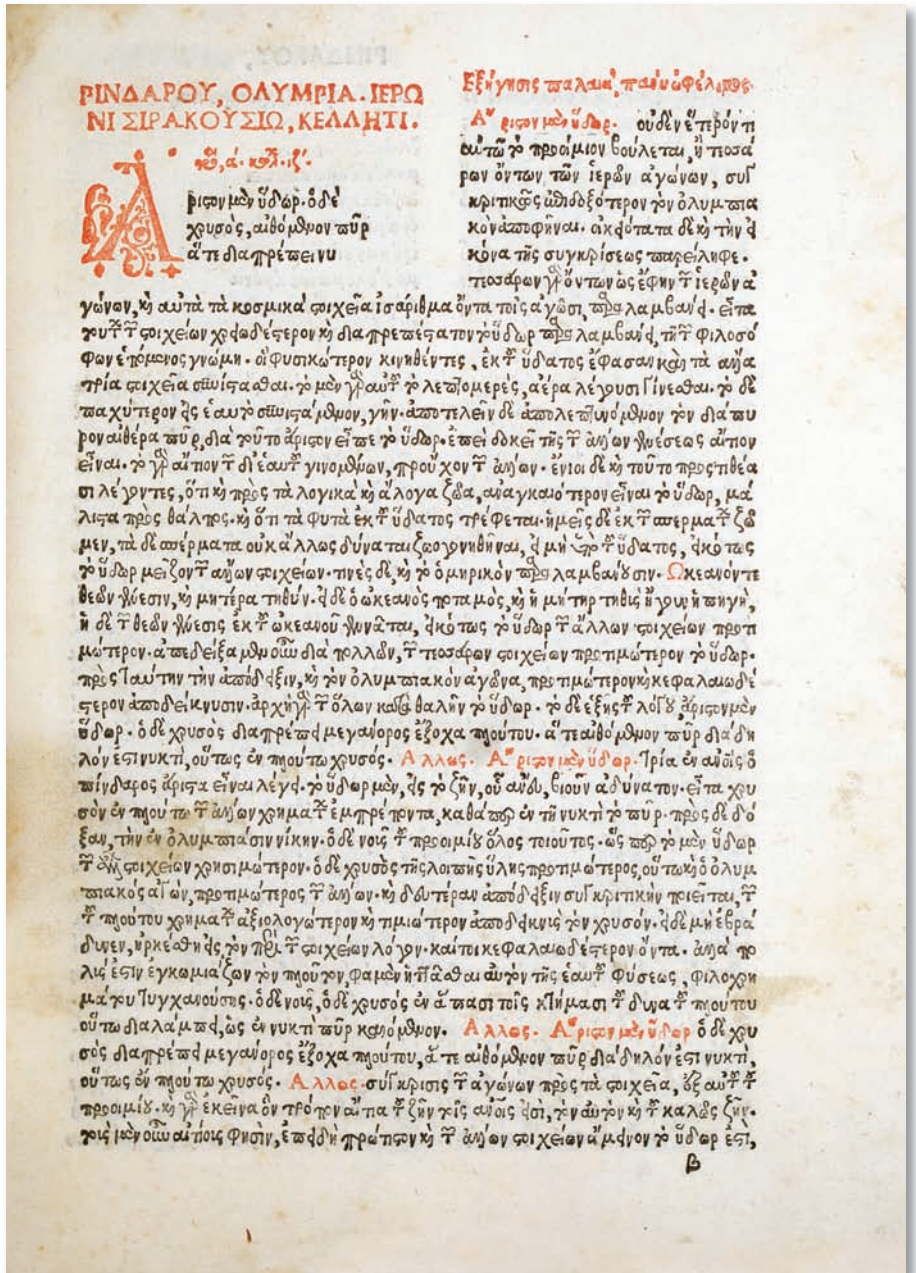 ΡΙΝΔΑΡΟΥ, ΟΛΥΜΡΙΑ. ΙΕΡΩ
ΝΙ ΣΙΡΑΚΟΥΣΙΩ, ΚΕΛΛΗΤΙ.
ᾠ, ά. κωλ. ιζ'.
Αριστον μὲν ὕδωρ. ὁ δὲ
χρυσὸς, αἰθόμενον πῦρ
ἅτε διαπρέπει νυ
Εξήγησις παλαιὰ, πάνυ ὠφέλιμος.
Αʺριστον μὲν ὕδωρ. οὐδὲν ἕτερόν τι
αὐτῷ τὸ προοίμιον βούλεται, ἢ τεσσά
ρων ὄντων τῶν ἱερῶν ἀγώνων, συγ
κριτικῶς ἐνδοξότερον τὸν ὀλυμπια
κὸν ἀποφῆναι. οἰκειότατα δὲ καὶ τὴν εἰ
κόνα τῆς συγκρίσεως παρείληφε.
τεσσάρων γὰρ ὄντων ὡς ἔφην τῶν ἱερῶν ἀ
γώνων, καὶ αὐτὰ τὰ κοσμικὰ στοιχεῖα ἰσάριθμα ὄντα τοῖς ἀγῶσι, παραλαμβάνει. εἶτα
τούτων τῶν στοιχείων χρειωδέστερον καὶ διαπρεπέστατον τὸ ὕδωρ παραλαμβάνει, τῇ τῶν φιλοσό
φων ἑπόμενος γνώμῃ. οἱ φυσικώτερον κινηθέντες, ἐκ τοῦ ὕδατος ἔφασαν καὶ τὰ ἄλλα
τρία στοιχεῖα συνίστασθαι. τὸ μὲν γὰρ αὐτοῦ τὸ λεπτομερὲς, ἀέρα λέγουσι γίνεσθαι. τὸ δὲ
παχύτερον εἰς ἑαυτὸ συνιστάμενον, γῆν. ἀποτελεῖν δὲ ἀπολεπτυνόμενον τὸν διάπυ
ρον αἰθέρα πῦρ, διὰ τοῦτο ἄριστον εἶπε τὸ ὕδωρ. ἐπεὶ δοκεῖ τῆς τῶν ἄλλων γενέσεως αἴτιον
εἶναι. τὸ γὰρ αἴτιον τῶν δι' ἑαυτοῦ γινομένων, προὔχον τῶν ἄλλων. ἔνιοι δὲ καὶ τοῦτο προστιθέα
σι λέγοντες, ὅτι καὶ πρὸς τὰ λογικὰ καὶ ἄλογα ζῶα, ἀναγκαιότερον εἶναι τὸ ὕδωρ, μά
λιστα πρὸς θάλπος. καὶ ὅτι τὰ φυτὰ ἐκ τοῦ ὕδατος τρέφεται. ἡμεῖς δὲ ἐκ τῶν σπερμάτων ζῶ
μεν, τὰ δὲ σπέρματα οὐκ ἄλλως δύναται ζωογονηθῆναι, εἰ μὴ ὑπὸ τοῦ ὕδατος, εἰκότως
τὸ ὕδωρ μεῖζον τῶν ἄλλων στοιχείων. τινὲς δὲ, καὶ τὸ ὁμηρικὸν παραλαμβάνουσιν. Ωκεανόν τε
θεῶν γένεσιν, καὶ μητέρα τηθύν. εἰ δὲ ὁ ὠκεανὸς ποταμὸς, καὶ ἡ μήτηρ τηθὶς ἤγουν ἡ πηγὴ,
ἡ δὲ τῶν θεῶν γένεσις ἐκ τοῦ ὠκεανοῦ γεννᾶται, εἰκότως τὸ ὕδωρ τῶν ἄλλων στοιχείων προτι
μώτερον. ἀπεδείξαμεν οὖν διὰ πολλῶν, τῶν τεσσάρων στοιχείων προτιμώτερον τὸ ὕδωρ.
πρὸς ταύτην τὴν ἀπόδειξιν, καὶ τὸν ὀλυμπιακὸν ἀγῶνα, προτιμώτερον καὶ κεφαλαιωδέ
στερον ἀποδείκνυσιν. ἀρχὴ γὰρ τῶν ὅλων τὸ ὕδωρ. τὸ δὲ ἑξῆς τοῦ λόγου, ἄριστον μὲν
ὕδωρ. ὁ δὲ χρυσὸς διαπρέπει μεγάνορος ἔξοχα πλούτου. ἅτε αἰθόμενον πῦρ διάδη
λόν ἐστι νυκτὶ, οὕτως ἐν πλούτῳ χρυσός. Αλλως. Αʺριστον μὲν ὕδωρ. Τρία ἐν ἀνοις ὁ
πίνδαρος ἄριστα εἶναι λέγει. τὸ ὕδωρ μὲν, εἰς τὸ ζῆν, οὗ ἄνευ, βιοῦν ἀδύνατον. εἶτα χρυ
σὸν ἐν πλούτῳ τῶν ἄλλων χρημάτων ἐμπρέποντα, καθάπερ ἐν τῇ νυκτὶ τὸ πῦρ. πρὸς δὲ δό
ξαν, τὴν ἐν ὀλυμπιάσιν νίκην. ὁ δὲ νοῖς τοῦ προοιμίου ὅλος τοιοῦτος. ὥσπερ τὸ μὲν ὕδωρ
τῶν στοιχείων χρησιμώτερον. ὁ δὲ χρυσὸς τῆς λοιπῆς ὕλης προτιμώτερος, οὕτω καὶ ὁ ὀλυμ
πιακὸς ἀγὼν, προτιμώτερος τῶν ἄλλων. καὶ δευτέραν ἀπόδειξιν συγκριτικὴν ποιεῖται, τῶν
τοῦ πλούτου χρημάτων ἀξιολογώτερον καὶ τιμιώτερον ἀποδεικνὺς τὸν χρυσόν. εἰ δὲ μὴ ἐβρά
δυνεν, ἠρκέσθη εἰς τὸν περὶ τῶν στοιχείων λόγον. καίτοι κεφαλαιωδέστερον ὄντα. ἀλλὰ πο
λίς ἐστιν ἐγκωμιάζων τὸν πλοῦτον, φαμὲν ἡττᾶσθαι αὐτὸν τῆς ἑαυτοῦ φύσεως, φιλοχρη
μάτου τυγχανούσης. ὁ δὲ νοῖς, ὁ δὲ χρυσὸς ἐν ἅπασι τοῖς κτήμασι τοῦ πλούτου
οὕτω διαλάμπει, ὡς ἐν νυκτὶ πῦρ καιόμενον. Αλλως. Αʺριστον μὲν ὕδωρ ὁ δὲ χρυ
σὸς διαπρέπει μεγάνορος ἔξοχα πλούτου, ἅτε αἰθόμενον πῦρ διάδηλόν ἐστι νυκτὶ,
οὕτως ἐν πλούτῳ χρυσός. Αλλως. σύγκρισις τῶν ἀγώνων πρὸς τὰ στοιχεῖα, ἐξ αὐτοῦ τοῦ
προοιμίου. καὶ γὰρ ἐκεῖνα ὃν τρόπον αἴτια τοῦ ζῆν τοῖς ἀνοις εἰσὶ, τὸν αὐτὸν καὶ τοῦ καλῶς ζῆν.
τοῖς μὲν οὖν αἰτίοις φησὶν, ἐπειδὴ πρώτιστον καὶ τῶν ἄλλων στοιχείων ἄμεινον τὸ ὕδωρ ἐστὶ,
β